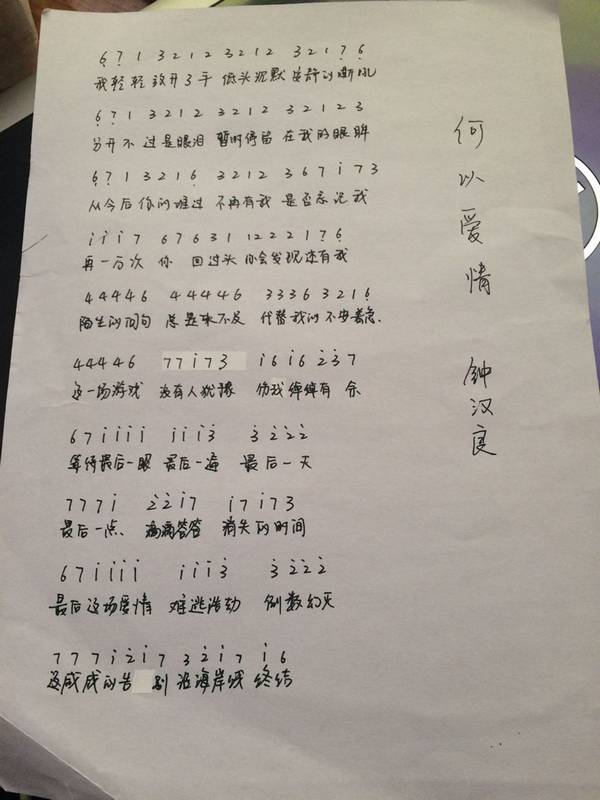 6̣ 7̣ 1 3 2 1 2 3 2 1 2 3 2 1 7̣ 6̣
我轻轻 放开了手 低头沉默 安静的嘶吼
6̣ 7̣ 1 3 2 1 2 3 2 1 2 3 2 1 2 3
分开不 过是眼泪 暂时停留 在我的眼眸
6̣ 7̣ 1 3 2 1 6̣ 3 2 1 2 3 6 7 1̇ 7 3
从今后 你的难过 不再有我 是否忘记我
1̇ 1̇ 1̇ 7 6 7 6 3 1 1 2 2 2 1 7̣ 6̣
再一百次 你 回过头 你会发现还有我
4 4 4 4 6 4 4 4 4 6 3 3 3 6 3 2 1 6̣
陌生的问句 总是来不及 代替我的不安着急.
4 4 4 4 6 7 7 1̇ 7 3 1̇ 6 1̇ 6 2̇ 3̇ 7
这一场游戏 没有人犹豫 伤我绰绰有 余
6 7 1̇ 1̇ 1̇ 1̇ 1̇ 1̇ 1̇ 3̇ 3̇ 2̇ 2̇ 2̇
等待最后一眼 最后一遍 最后一天
7 7 7 1̇ 2̇ 2̇ 1̇ 7 1̇ 7 1̇ 7 3
最后一点 滴滴答答 消失的时间
6 7 1̇ 1̇ 1̇ 1̇ 1̇ 1̇ 1̇ 3̇ 3̇ 2̇ 2̇ 2̇
最后这场爱情 难逃浩劫 倒数幻灭
7 7 7 1̇ 2̇ 1̇ 7 3 2̇ 1̇ 7 1̇ 6
这咸咸的告 别 沿海岸线 终结
何以爱情
钟汉良